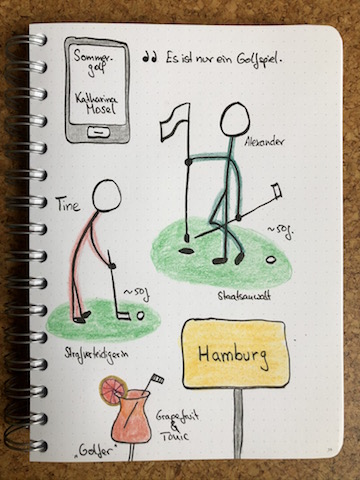 Sommer-
golf
Katharina
Mosel
„Es ist nur ein Golfspiel.
Alexander
Tine
~50J.
~50J
Staatsanwalt
Strafverteidigerin
Hamburg
Grapefruit
&
Tonic
„Golfer"